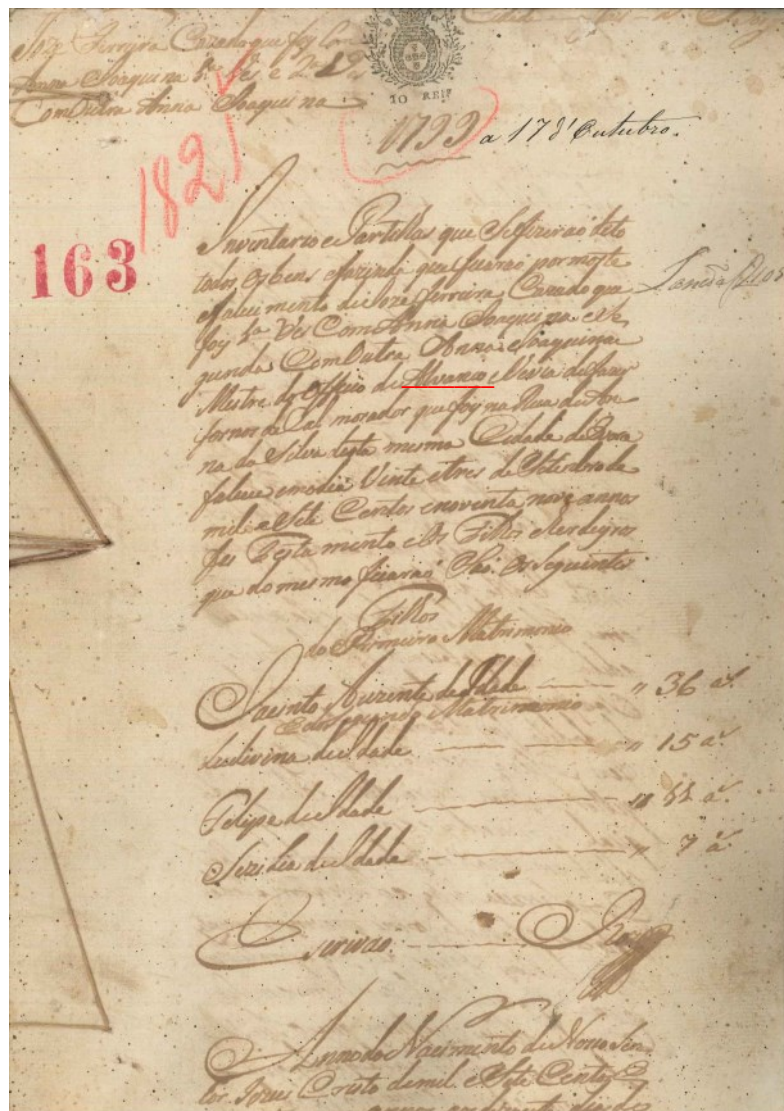 Joze Ferreyra Cazado que foy Com
Anna Joaquina 1ª Vês e 2ª
Com outra Anna Joaquina
10 REIS
1799 a 17 d'Outubro.
1821
163
Inventario e Partilhas que Se fizerao de to
todos os bens e fazenda que ficarao por morte
e falecimento de Joze Ferreira Cazado que
foy 1ª Ves Com Anna Joaquina e Se
gunda Com Outra Anna Joaquina
Mestre do Officio de Alvaneo e Vivia de fazer
fornos de Cal morador que foy na Rua de
na da Silva desta mesma Cidade de Evora
faleceu em o dia Vinte e tres de Setembro de
mil e Sete Centos e noventa nove annos
fes Testamento e Os Filhos e Erdeyros
que do mesmo ficarao São Os Seguintes
Filhos
do Primeiro Matrimonio
Jacinto Auzente de Idade " 36 as.
E do Segundo Matrimonio
Ludivina de Idade " 15 aˢ
Felipa de Idade " 11 aˢ
Sezilia de Idade " 7 aˢ
Escrivao
Anno do Nacimento de Noso Sen
hor Jezus Cristo de mil e Sete Centos E